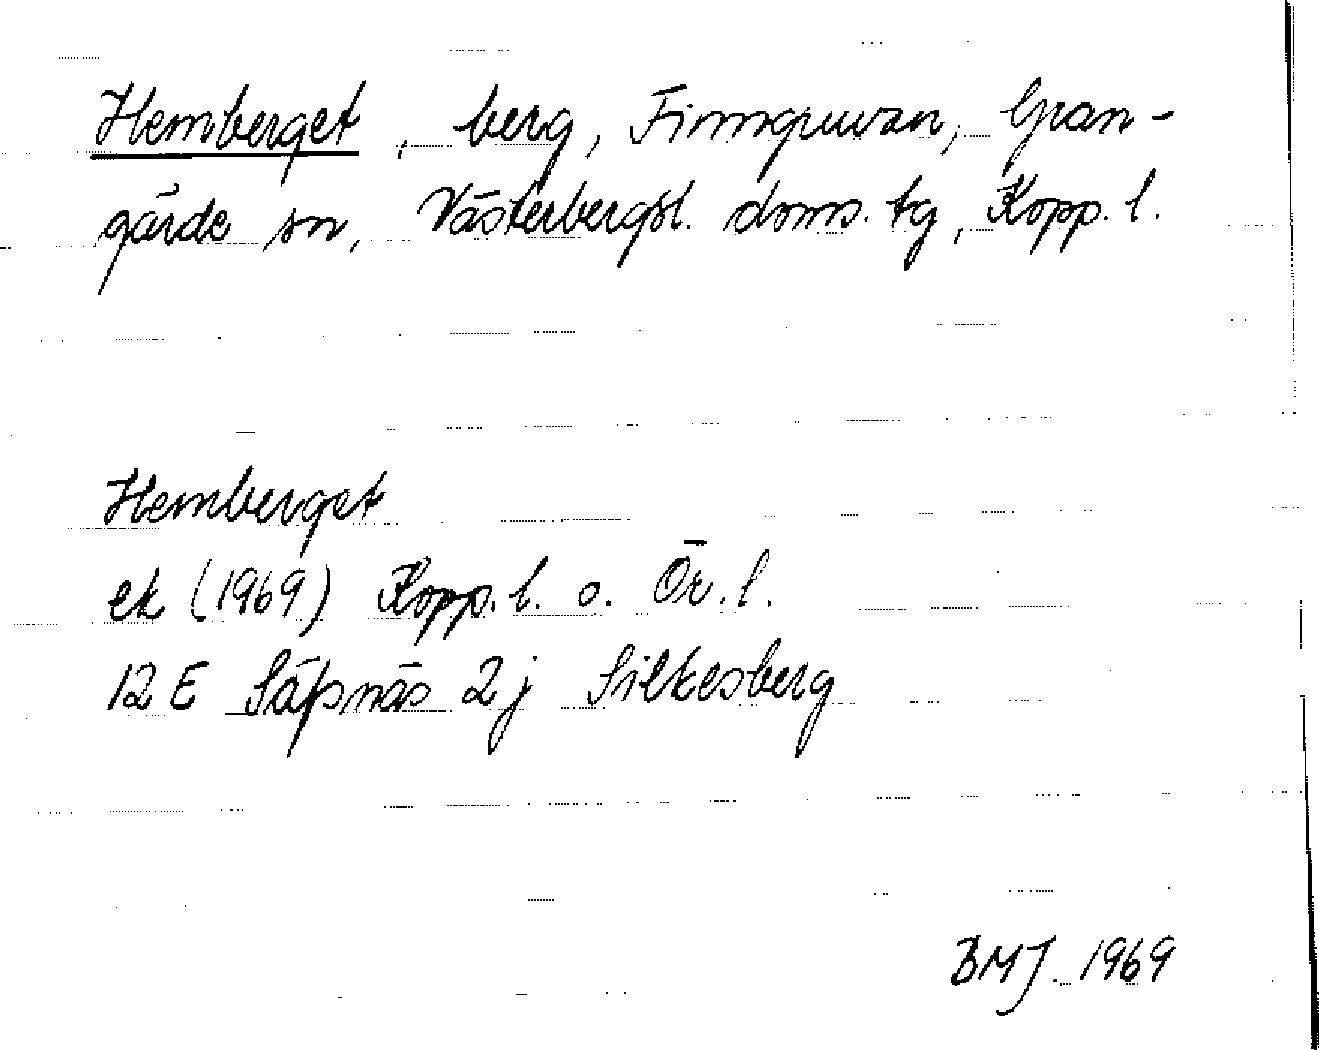 Hemberget, berg, Finngruvan, Gran-
gärde sn, Västerbergsl. doms. tg, Kopp. l.
Hemberget
ek (1969) Kopp. l. o. Ör. l.
12 E Säfsnäs 2j Silkesberg
BMJ. 1969